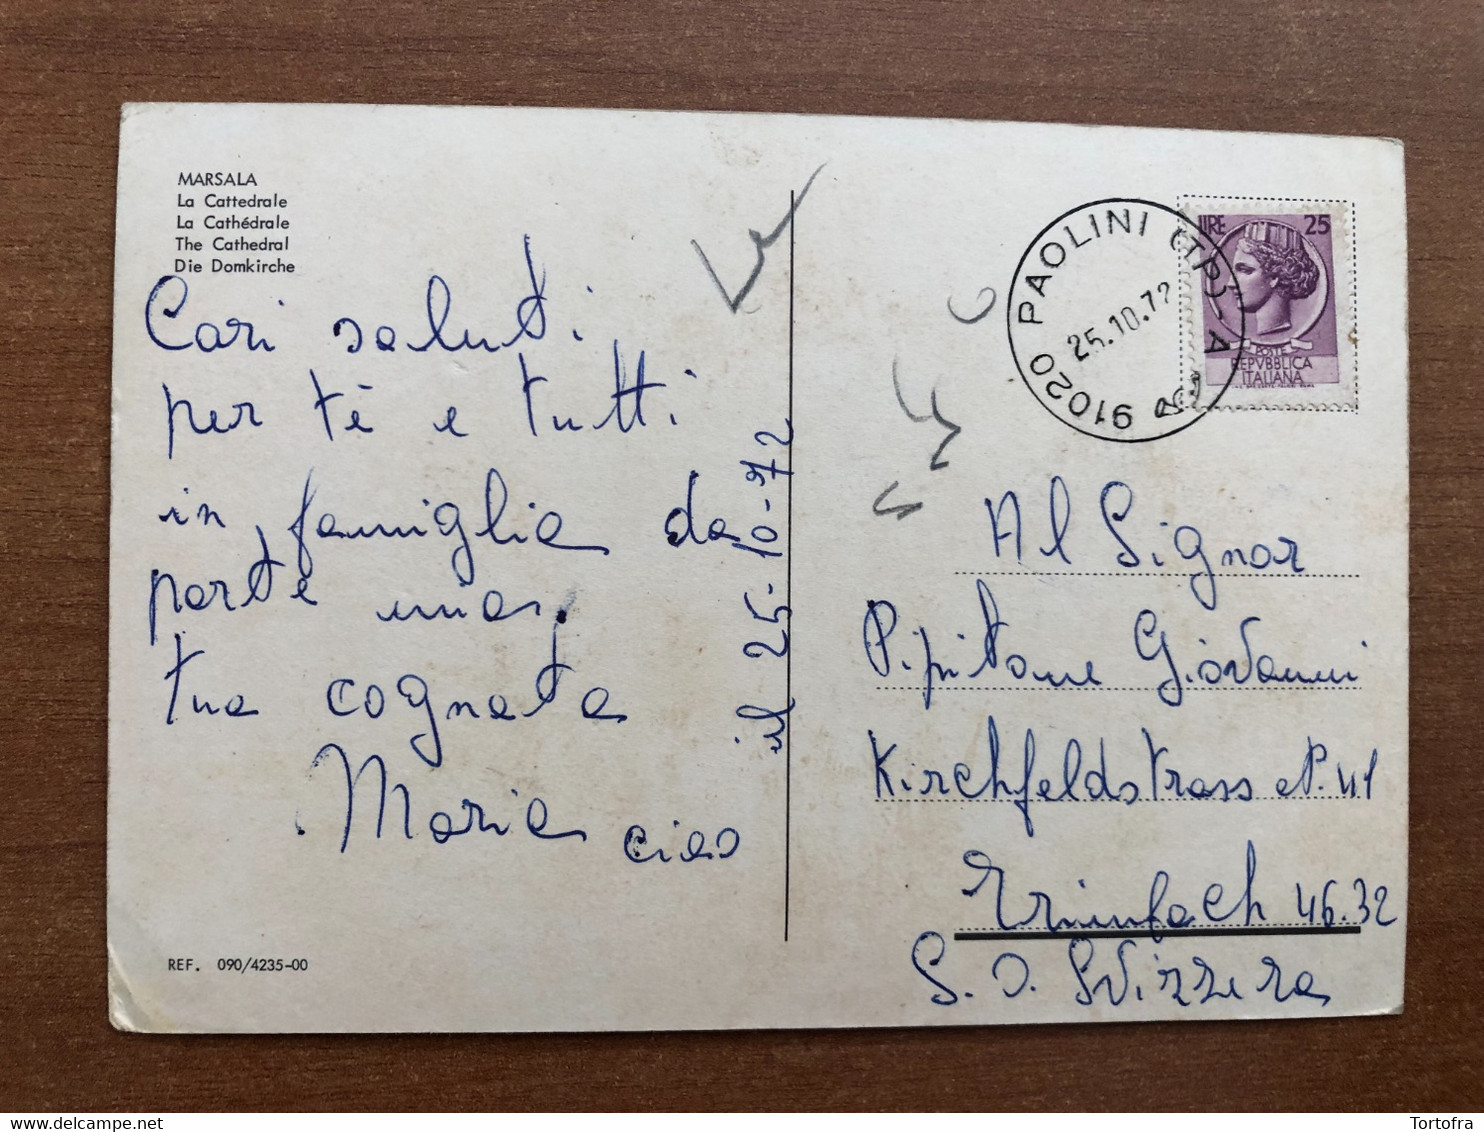 MARSALA
La Cattedrale
La Cathédrale
The Cathedral
Die Domkirche
Cari saluti
per tè e tutti
in famiglia da
parte mia.
tua cognata
Maria ciao
il 25-10-72
REF. 090/4235-00
91020 PAOLINI (TP) - A
25.10.72
LIRE 25
POSTE
REPVBBLICA
ITALIANA
Al Signor
Pipitone Giovanni
Kirchfeldstrass N. 41
46.32
S. O. Svizzera
Tortofra